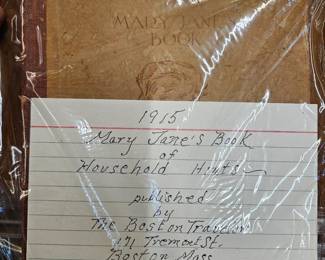 MARY JANE'S
BOOK
1915
Mary Jane's Book
of
Household Hints
published
by
The Boston Traveler
171 Tremont St.
Boston Mass